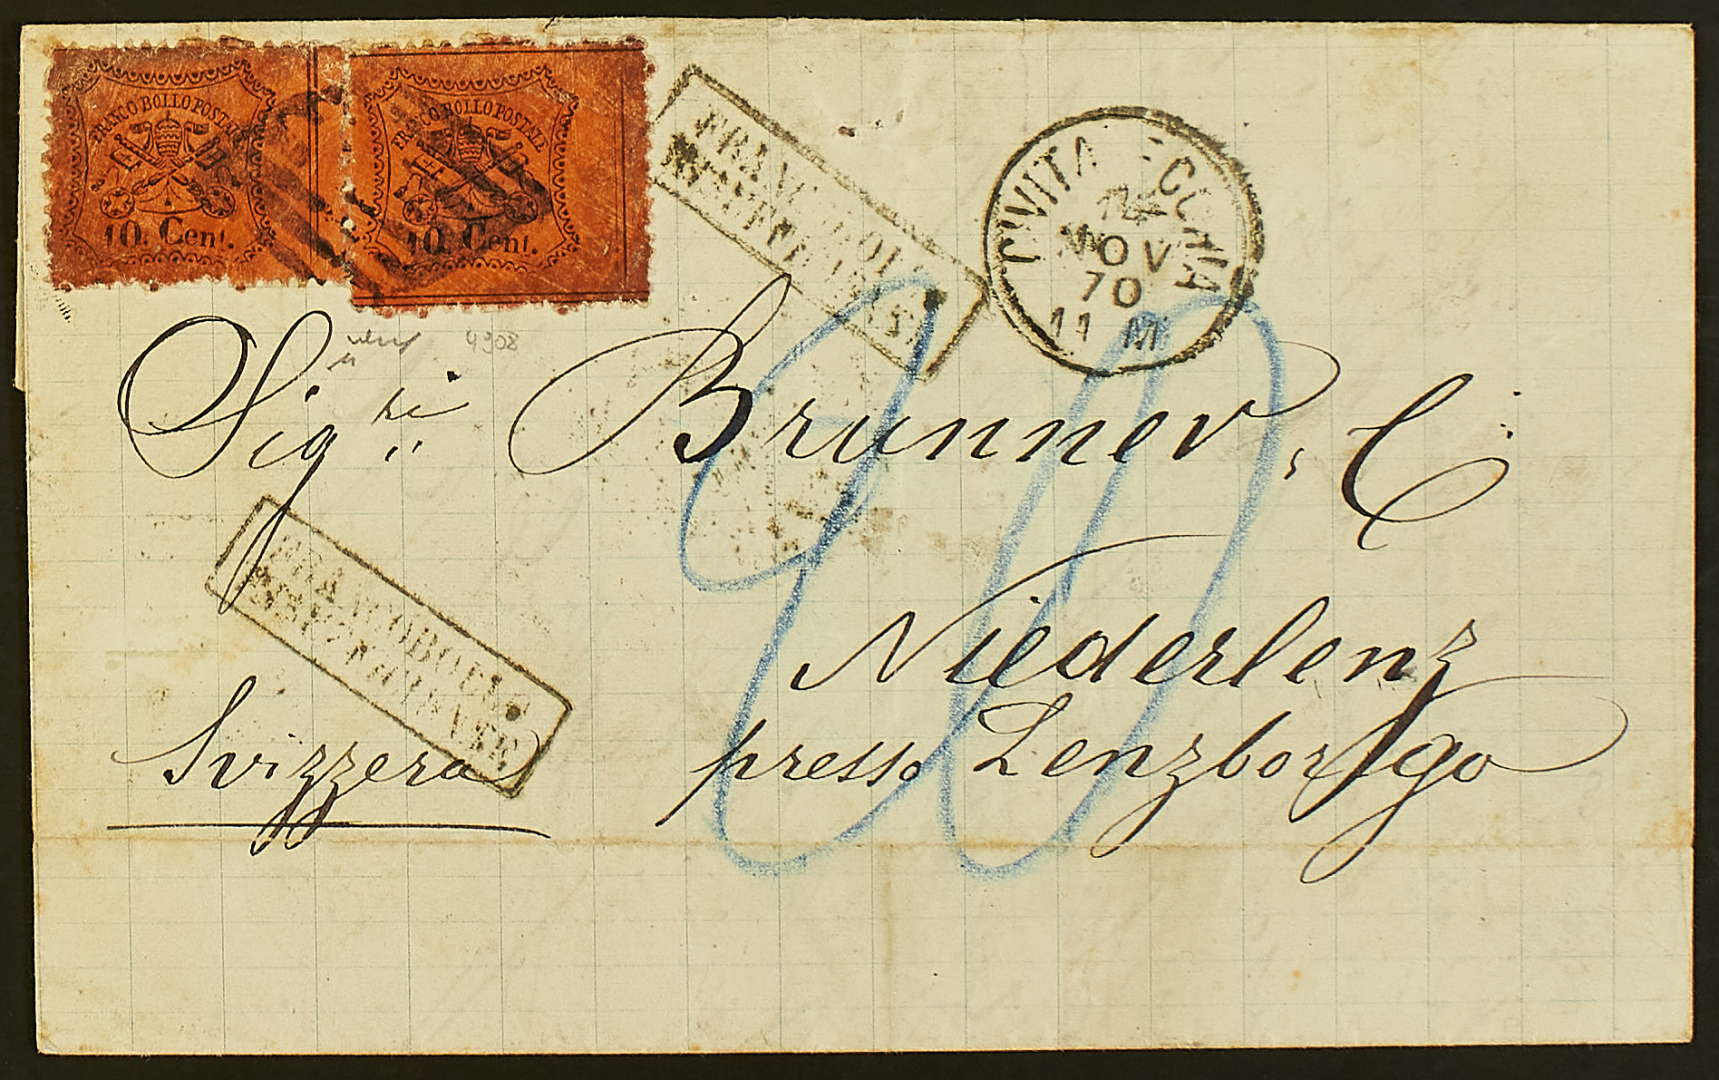 FRANCO BOLLO POSTALE
10. Cent.
FRANCO BOLLO POSTALE
10. Cent.
CIVITAVECCHIA
NOV
70
11 M
4908
Sig.ri Brunner, C.
90
FRANCOBOLLO
INSUFFICIENTE
FRANCOBOLLO
INSUFFICIENTE
Niederlenz
Svizzera presso Lenzborgo